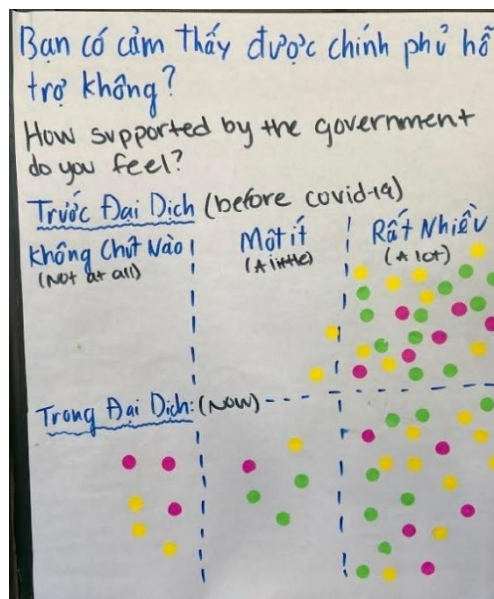 Bạn có cảm thấy được chính phủ hỗ
trợ không?
How supported by the government
do you feel?
Trước Đại Dịch (before covid-19)
Không Chút Nào
(Not at all)
Một ít
(A little)
Rất Nhiều
(A lot)
Trong Đại Dịch: (now)